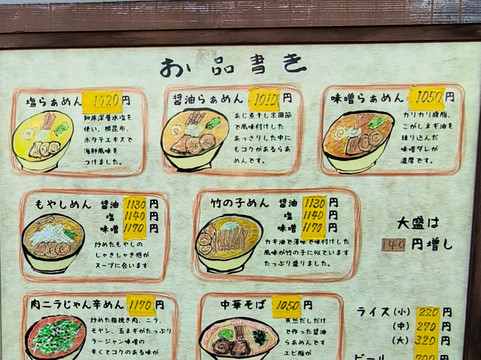 お品書き
塩らぁめん 1020円
和床深層水塩を
使い、根昆布、
ホタテエキスで
海鮮風味を
つけました。
醤油らぁめん 1010円
あじ煮干し宗田節
で風味付けした
あっさりした中に
もコクがあるらぁ
めんです。
味噌らぁめん 1050円
カリカリ背脂、
こがしネギ油を
練り込んだ
味噌ダレが
濃厚です。
もやしめん 醤油 1130円
塩 1140円
味噌 1170円
炒めたもやしの
しゃきしゃき感が
スープに合います
竹の子めん 醤油 1130円
塩 1140円
味噌 1170円
カキ油で薄味で味付けした
風味が竹の子に似ています
たっぷり盛りました。
大盛は
140円増し
肉ニラじゃん辛めん 1170円
炒めた粗挽き肉、ニラ、
モヤシ、玉ネギがたっぷり
ラージャン味噌の
辛くてコクのある味が
中華そば 1050円
天然だしだけ
で作った醤油
らぁめんです
エビ脂が
ライス(小) 220円
(中) 270円
(大) 320円
ビール 700円